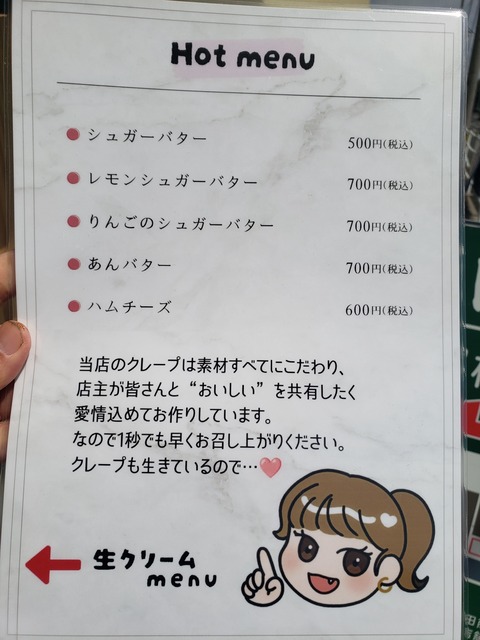 Hot menu
シュガーバター 500円(税込)
レモンシュガーバター 700円(税込)
りんごのシュガーバター 700円(税込)
あんバター 700円(税込)
ハムチーズ 600円(税込)
当店のクレープは素材すべてにこだわり、
店主が皆さんと“おいしい”を共有したく
愛情込めてお作りしています。
なので1秒でも早くお召し上がりください。
クレープも生きているので…
生クリーム
menu